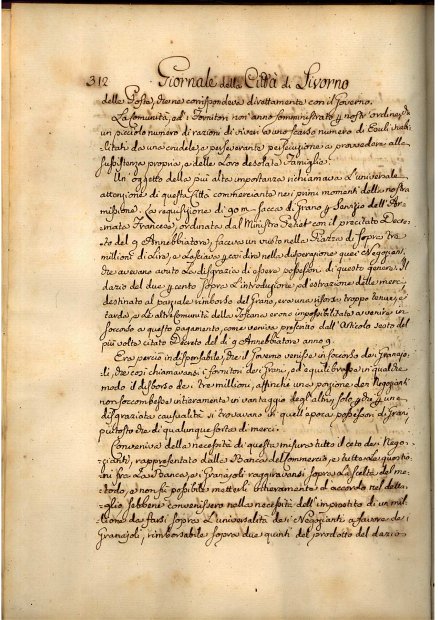 312 Giornale della Città di Livorno
delle Poste, che ne corrispondeva direttamente con il Governo.
La Comunità, ed i Fornitori non anno somministrato p nostr'ordine, che
un piccolo numero di razioni di viveri a uno scarso numero di Esuli, riabi-
litati da una crudele, e perseverante persecuzione a provvedere alla
sussistenza propria, e delle Loro desolate Famiglie.
Un oggetto della più alta importanza richiamava L'universale
attenzione di questa Città commerciante nei primi momenti della nostra
missione. La requisizione di 90 m. sacca di Grano p servizio dell'Ar-
mata Francese, ordinata dal Ministro Petiet con il precitato Decre-
to del 9 Annebbiatore, faceva un vuoto nella Piazza di sopra tre
milioni di Lire, e Lasciava p così dire nella disperazione quei Negozian-
ti, che avevano avuto La disgrazia di essere possessori di questo genere. Il
dazio del due p cento sopra L'introduzione, ed estrazione delle merci,
destinato al parziale rimborso del Grano, era una risorsa troppo tenue, e
tarda, e Le altre Comunità della Toscana erano impossibilitate a venire in
soccorso a questo pagamento, come veniva prescritto dall'Articolo sesto del
più volte citato Decreto del dì 9 Annebbiatore anno 9.
Era perciò indispensabile, che il Governo venisse in soccorso dei Granajo-
li, che così chiamavansi i fornitori dei Grani, ed equilibrasse in qualche
modo il disborso dei tre milioni, affinché una porzione dei Negozianti
non soccombesse intieramente in vantaggio degl'altri, solo p che p una
disgraziata causalità si trovavano in quell'epoca possessori di Grani,
piuttosto che di qualunque sorta di merci.
Conveniva della necessità di questa misura tutto il Ceto dei Nego-
zianti, rappresentato dalla Banca del Commercio, e tutte Le questio-
ni fra La Banca, e i Granajoli raggiravansi sopra La scelta del me-
todo, e non fu possibile metterli interamente d'accordo nel detta-
glio, sebbene convenissero nella necessità dell'imprestito di un mil-
lione da farsi sopra L'universalità dei Negozianti a favore dei
Granajoli, rimborsabile sopra due quinti del prodotto del dazio